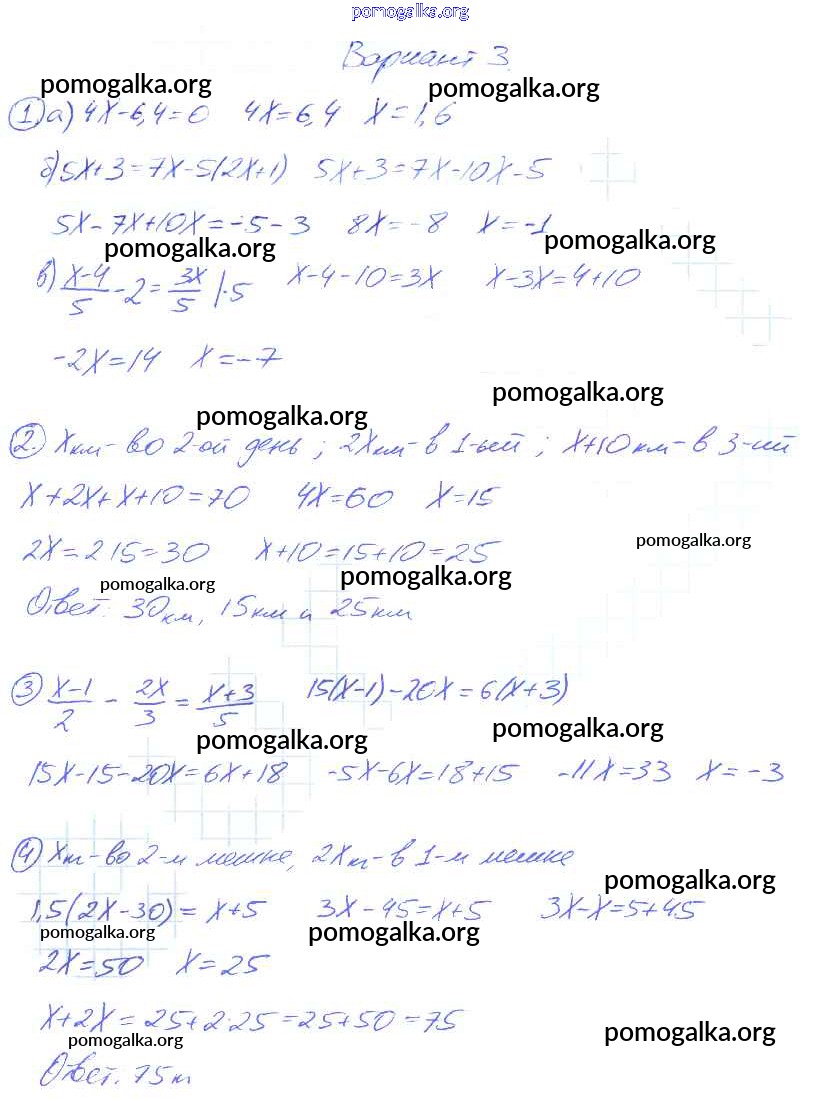 pomogalka.org
Вариант 3
pomogalka.org pomogalka.org
1. а) 4x-6,4=0 4x=6,4 x=1,6
б) 5x+3=7x-5(2x+1) 5x+3=7x-10x-5
5x-7x+10x=-5-3 8x=-8 x=-1
pomogalka.org pomogalka.org
в) (x-4)/5 - 2 = 3x/5 |·5 x-4-10=3x x-3x=4+10
-2x=14 x=-7
pomogalka.org pomogalka.org
2. x км - во 2-ой день; 2x км - в 1-ый; x+10 км - в 3-ий
x+2x+x+10=70 4x=60 x=15
2x=2·15=30 x+10=15+10=25
pomogalka.org
pomogalka.org pomogalka.org
Ответ: 30км, 15км и 25км
3 (x-1)/2 - 2x/3 = (x+3)/5 15(x-1)-20x=6(x+3)
pomogalka.org pomogalka.org
15x-15-20x=6x+18 -5x-6x=18+15 -11x=33 x=-3
4 x кг - во 2-м мешке, 2x кг - в 1-м мешке
pomogalka.org
1,5(2x-30)=x+5 3x-45=x+5 3x-x=5+45
pomogalka.org pomogalka.org
2x=50 x=25
x+2x=25+2·25=25+50=75
pomogalka.org pomogalka.org
Ответ. 75кг